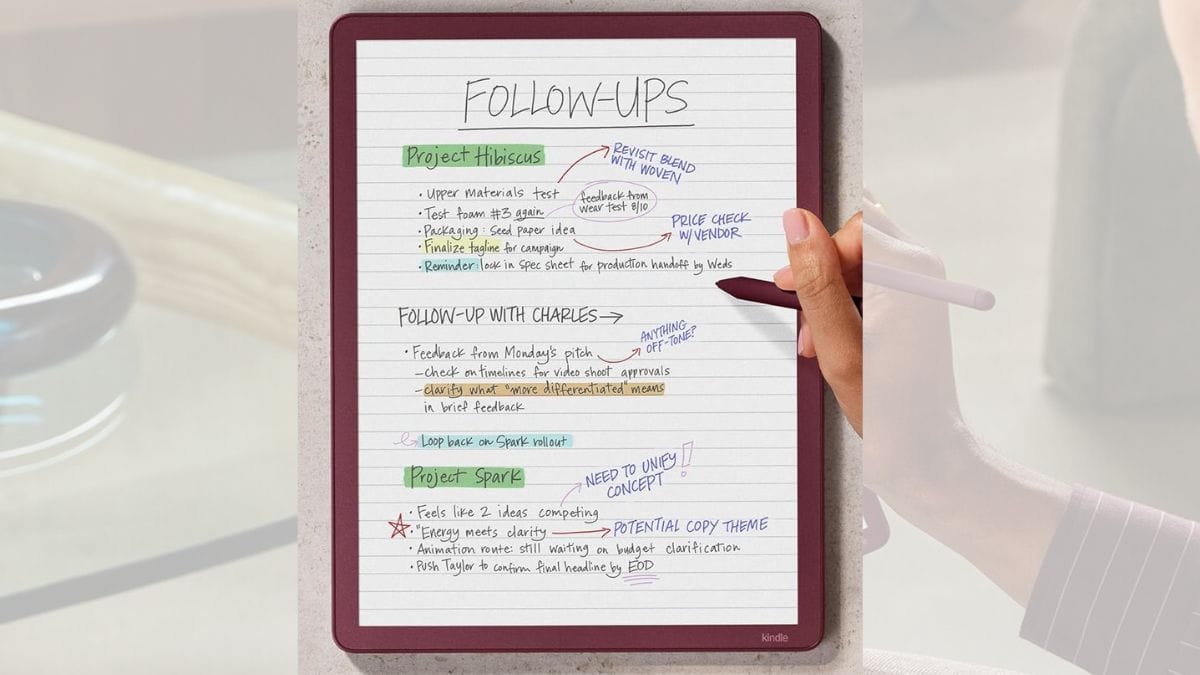 FOLLOW-UPS
Project Hibiscus
REVISIT BLEND
WITH WOVEN
• Upper materials test
feedback from
wear test 8/10
• Test foam #3 again
• Packaging: Seed paper idea
PRICE CHECK
W/VENDOR
• Finalize tagline for campaign
• Reminder: lock in spec sheet for production handoff by Weds
FOLLOW-UP WITH CHARLES→
ANYTHING
OFF-TONE?
• Feedback from Monday's pitch
–check on timelines for video shoot approvals
–clarify what "more differentiated" means
in brief feedback
Loop back on Spark rollout
Project Spark
NEED TO UNIFY
CONCEPT!
• Feels like 2 ideas competing
• "Energy meets clarity → POTENTIAL COPY THEME
• Animation route: still waiting on budget clarification
• Push Taylor to confirm final headline by EOD
kindle